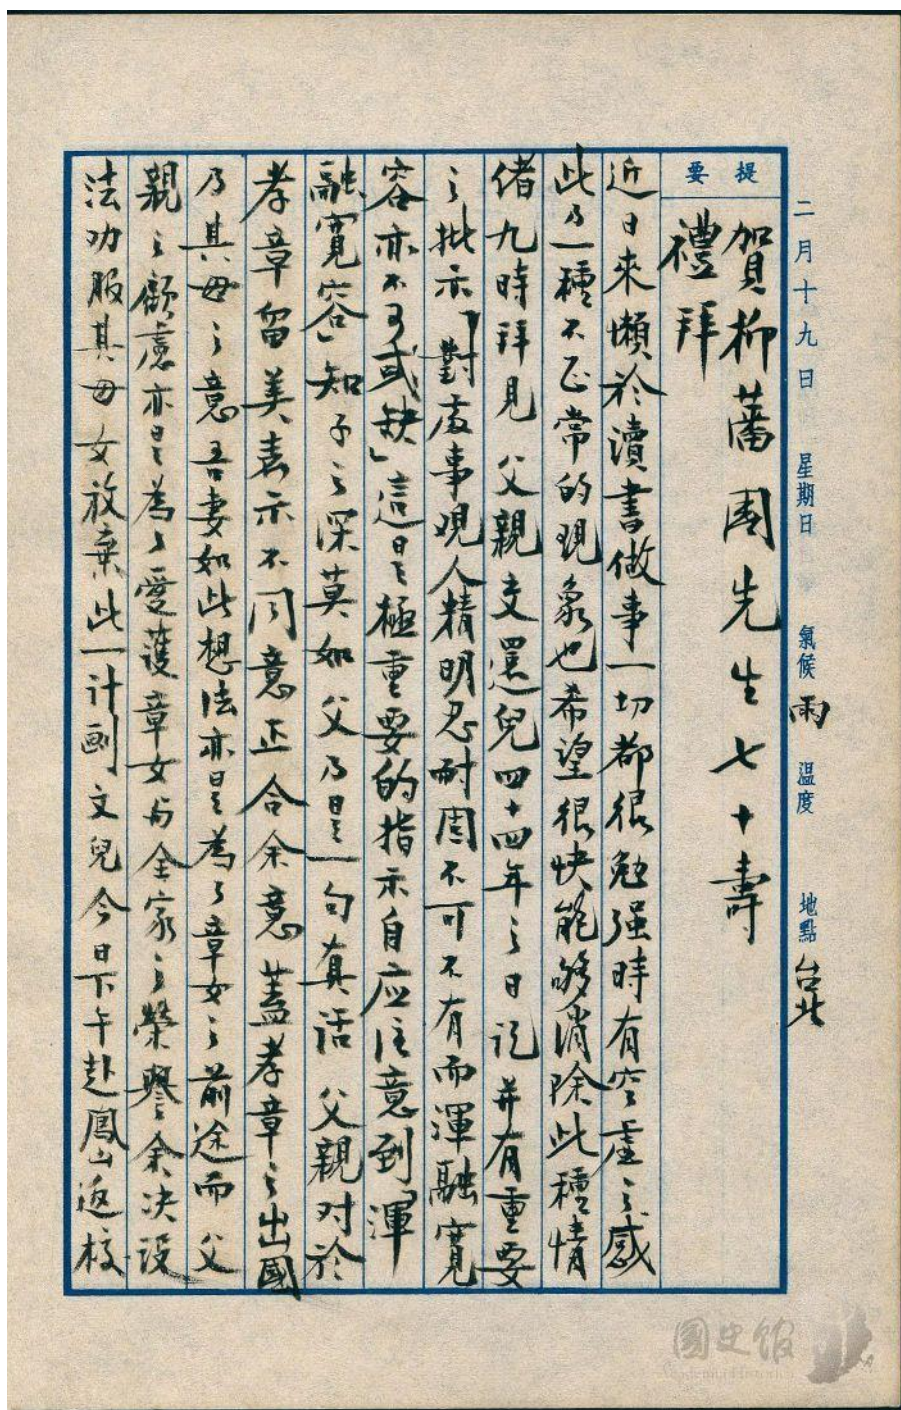 二月十九日 星期日 氣候 雨 溫度 地點 台北
提要
賀柳藩國先生七十壽
禮拜
近日來懶於讀書做事一切都很勉强時有空虛之感
此乃一種不正常的現象也希望很快能够消除此種情
緒九時拜見 父親交還兒四十四年之日記並有重要
之批示「對處事觀人精明忍耐固不可不有而渾融寬
容亦不可或缺」這是極重要的指示自应注意到「渾
融寬容」知子之深莫如 父乃是一句真話 父親对於
孝章留美表示不同意正合余意蓋孝章之出國
乃其母之意吾妻如此想法亦是為了章女之前途而 父
親之顧慮亦是為了愛護章女与全家之榮譽余决設
法功服其母女放棄此一计劃文兒今日下午赴鳳山返校
國史館
Academia Historica